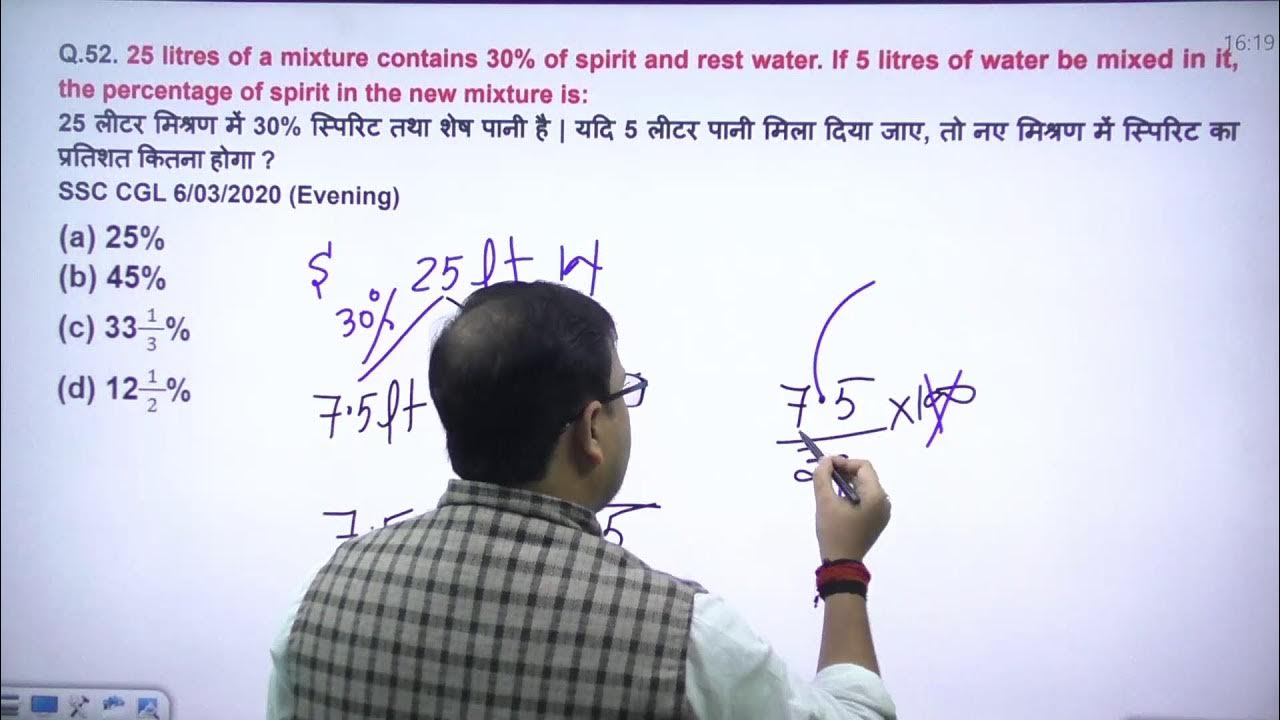 16:19
Q.52. 25 litres of a mixture contains 30% of spirit and rest water. If 5 litres of water be mixed in it,
the percentage of spirit in the new mixture is:
25 लीटर मिश्रण में 30% स्पिरिट तथा शेष पानी है | यदि 5 लीटर पानी मिला दिया जाए, तो नए मिश्रण में स्पिरिट का
प्रतिशत कितना होगा ?
SSC CGL 6/03/2020 (Evening)
(a) 25%
(b) 45%
(c) 33 1/3 %
(d) 12 1/2 %
S 25 lt W
30%
7.5 lt
7.5 5
7.5 ×100